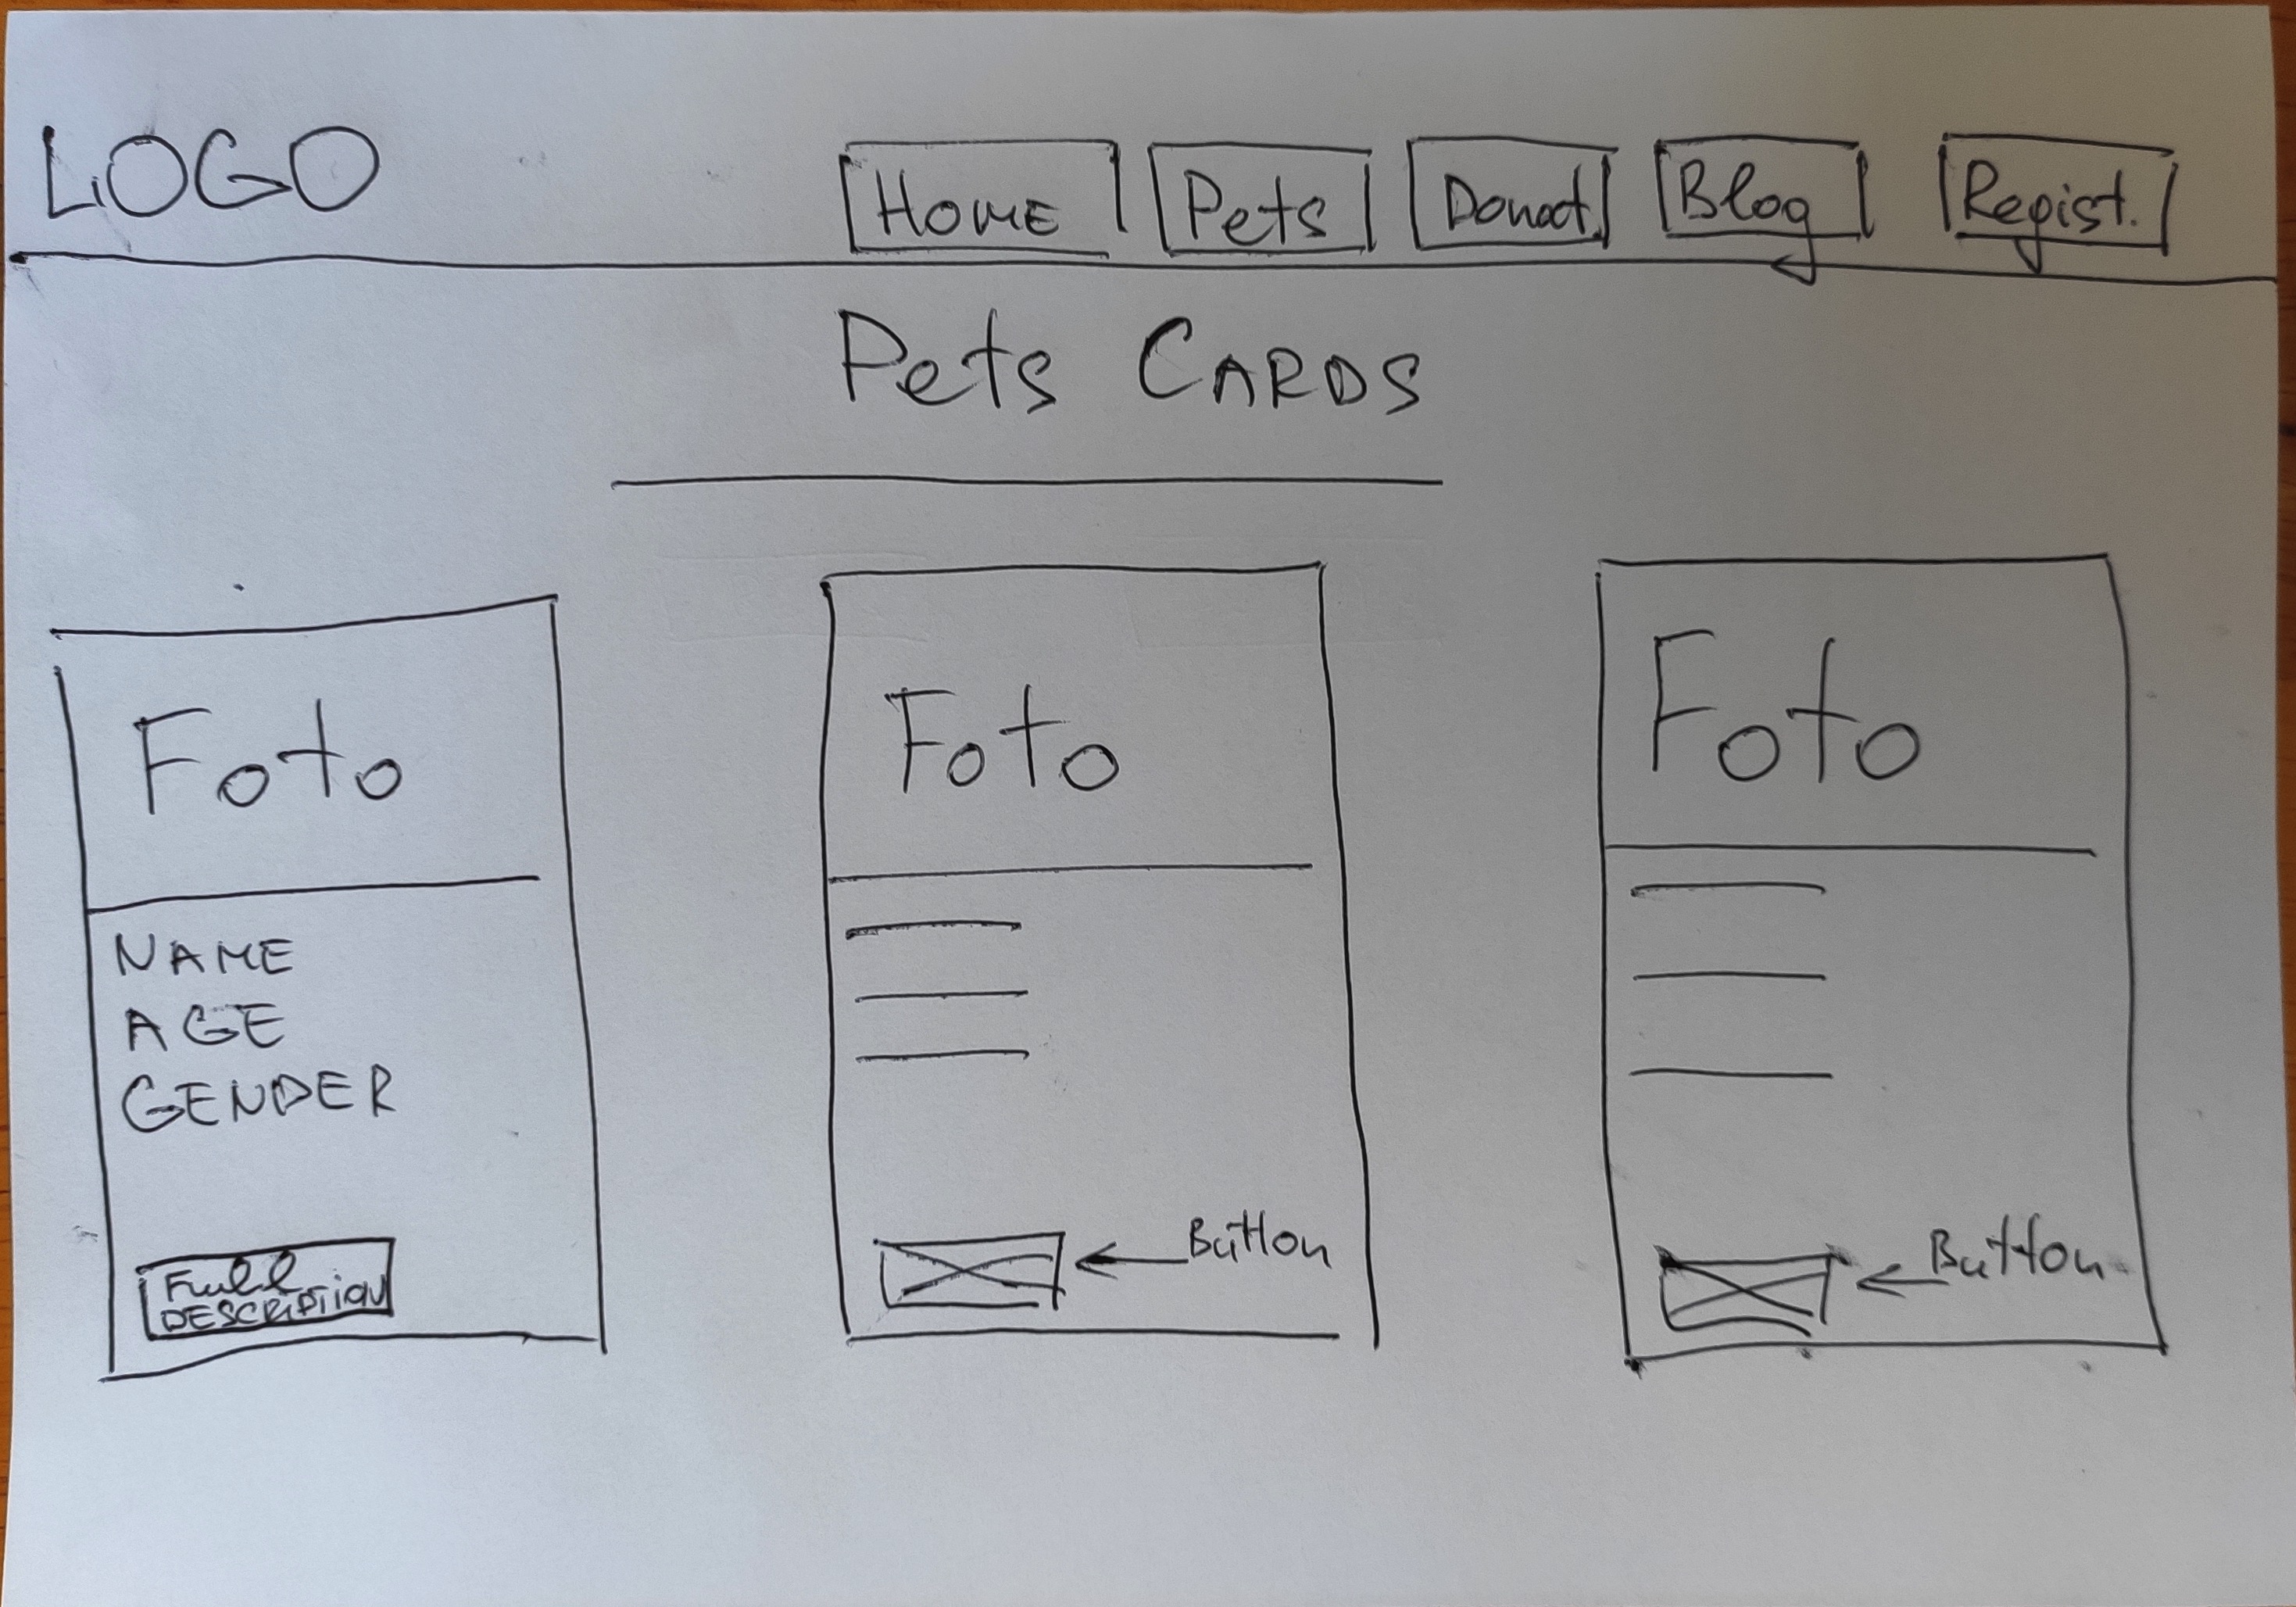 LOGO
Home Pets Donat. Blog Regist.
Pets CARDS
Foto Foto Foto
NAME
AGE
GENDER
Full
DESCRIPTION
Button Button